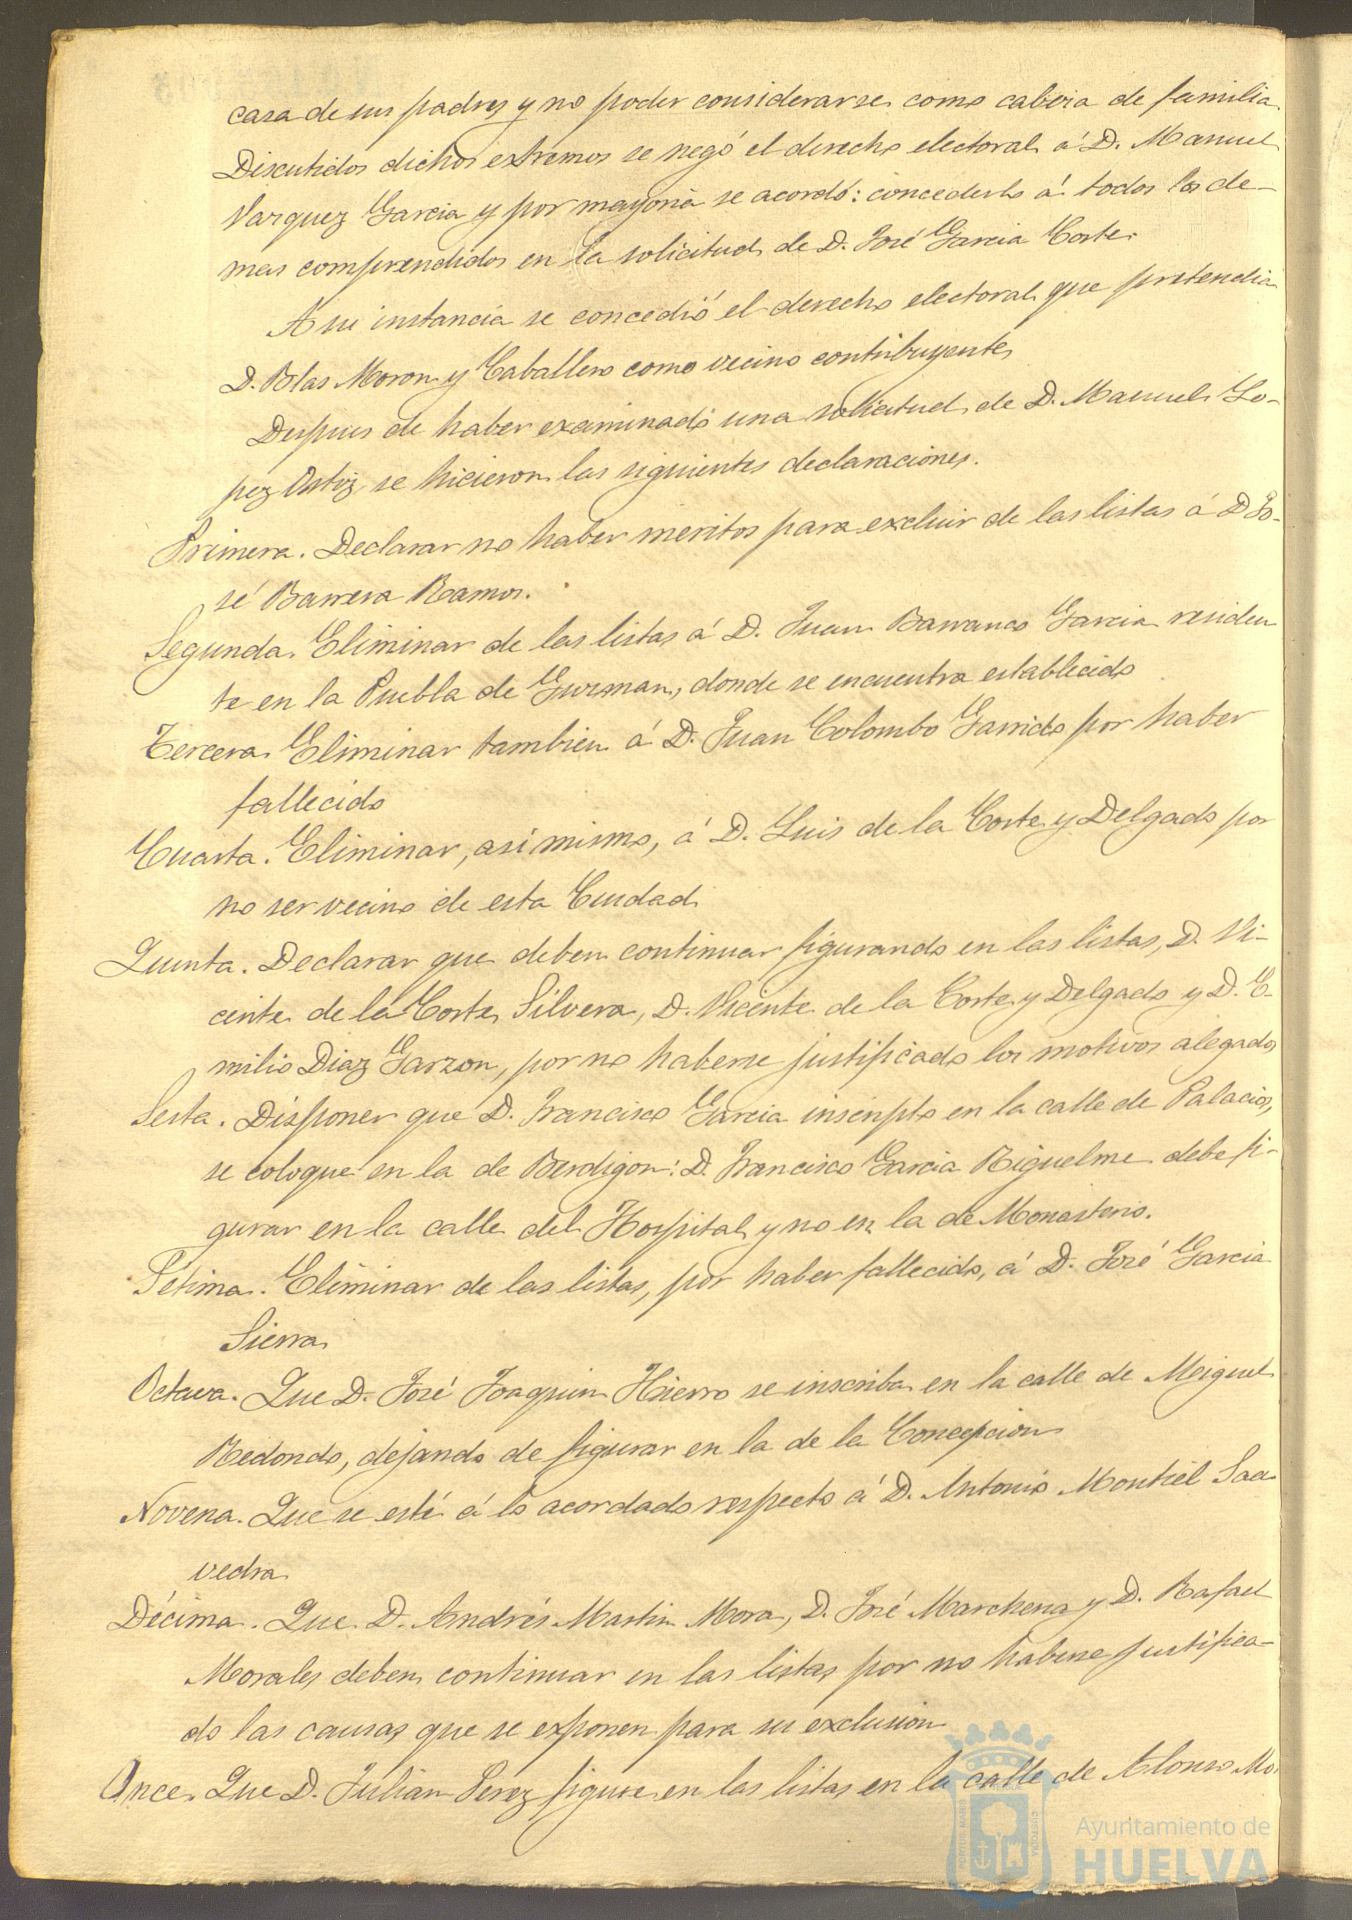 casa de sus padres y no poder considerarse como cabeza de familia
Discutidos dichos extremos se negó el derecho electoral á D. Manuel
Vazquez Garcia y por mayoria se acordó: concederlo á todos los de-
mas comprendidos en la solicitud de D. José Garcia Corte.
A su instancia se concedió el derecho electoral que pretendia
D. Blas Moron y Caballero como vecino contribuyente
Despues de haber examinado una solicitud de D. Manuel Lo-
pez Ortiz se hicieron las siguientes declaraciones.
Primera. Declarar no haber meritos para excluir de las listas á D. Jo-
sé Barrera Ramos.
Segunda. Eliminar de las listas á D. Juan Barranco Garcia residen
te en la Puebla de Guzman, donde se encuentra establecido
Tercera. Eliminar tambien á D. Juan Colombo Garrido por haber
fallecido
Cuarta. Eliminar, asi mismo, á D. Luis de la Corte y Delgado por
no ser vecino de esta Ciudad.
Quinta. Declarar que deben continuar figurando en las listas, D. Vi-
cente de la Corte Silvera, D. Vicente de la Corte y Delgado y D. E-
milio Diaz Garzon, por no haberse justificado los motivos alegados
Sesta. Disponer que D. Francisco Garcia inscripto en la calle de Palacios,
se coloque en la de Berdigon: D. Francisco Garcia Riguelme debe fi-
gurar en la calle del Hospital y no en la de Monasterio.
Sétima. Eliminar de las listas, por haber fallecido, á D. José Garcia
Sierra
Octava. Que D. José Joaquin Hierro se inscriba en la calle de Miguel
Redondo, dejando de figurar en la de la Concepcion
Novena. Que se esté á lo acordado respecto á D. Antonio Montiel Saa
vedra
Décima. Que D. Andrés Martin Mora, D. José Marchena y D. Rafael
Morales deben continuar en las listas por no haberse justifica-
do las causas que se exponen para su exclusion
Once. Que D. Julian Perez figure en las listas en la calle de Alonso Mo
Ayuntamiento de
HUELVA